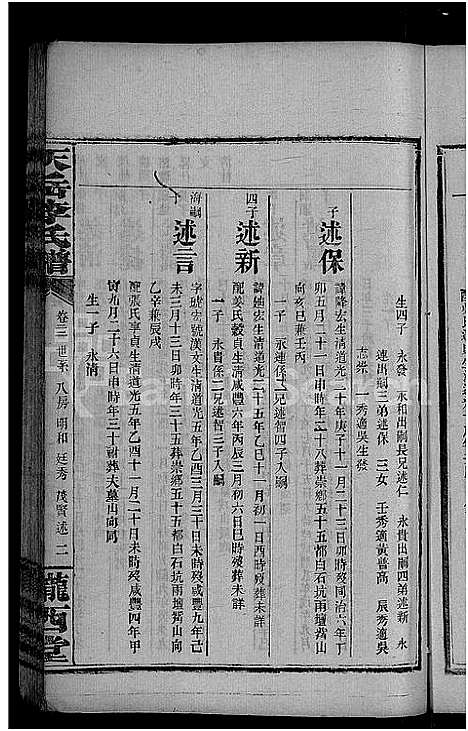 生四子 永發 永和出嗣長兄述仁 永貴出嗣四弟述新 永
連出嗣三弟述保 三女 壬秀適黃普高 辰秀適吳
志崇 一秀適吳生發
子 述保
諱隆宏生清道光二十年庚子十一月二十三日卯時歿同治六年丁
卯五月二十一日申時年二十八葬崇鄉五十五都白石坑雨壇背山
向亥巳兼壬丙
一子 永連係二兄述智四子入嗣
四子 述新
諱 宏生清道光二十五年乙巳十一月初一日酉時歿葬未詳
配姜氏毅貞生清咸豐六年丙辰三月初六日巳時歿葬未詳
一子 永貴係二兄述智三子入嗣
海嗣子 述言
字琥宏號漢文生清道光五年乙酉三月三十日未時歿咸豐九年己
未三月十三日卯時年三十五葬崇鄉五十五都白石坑雨壇背山向
乙辛兼辰戌
配張氏享貞生清道光五年乙酉十一月二十日未時歿咸豐四年甲
寅九月二十六日申時年三十祔葬夫墓山向同
生一子 永清
天岳李氏譜
卷三 世系 八房 明和 廷秀 茂賢 述 二
隴西堂